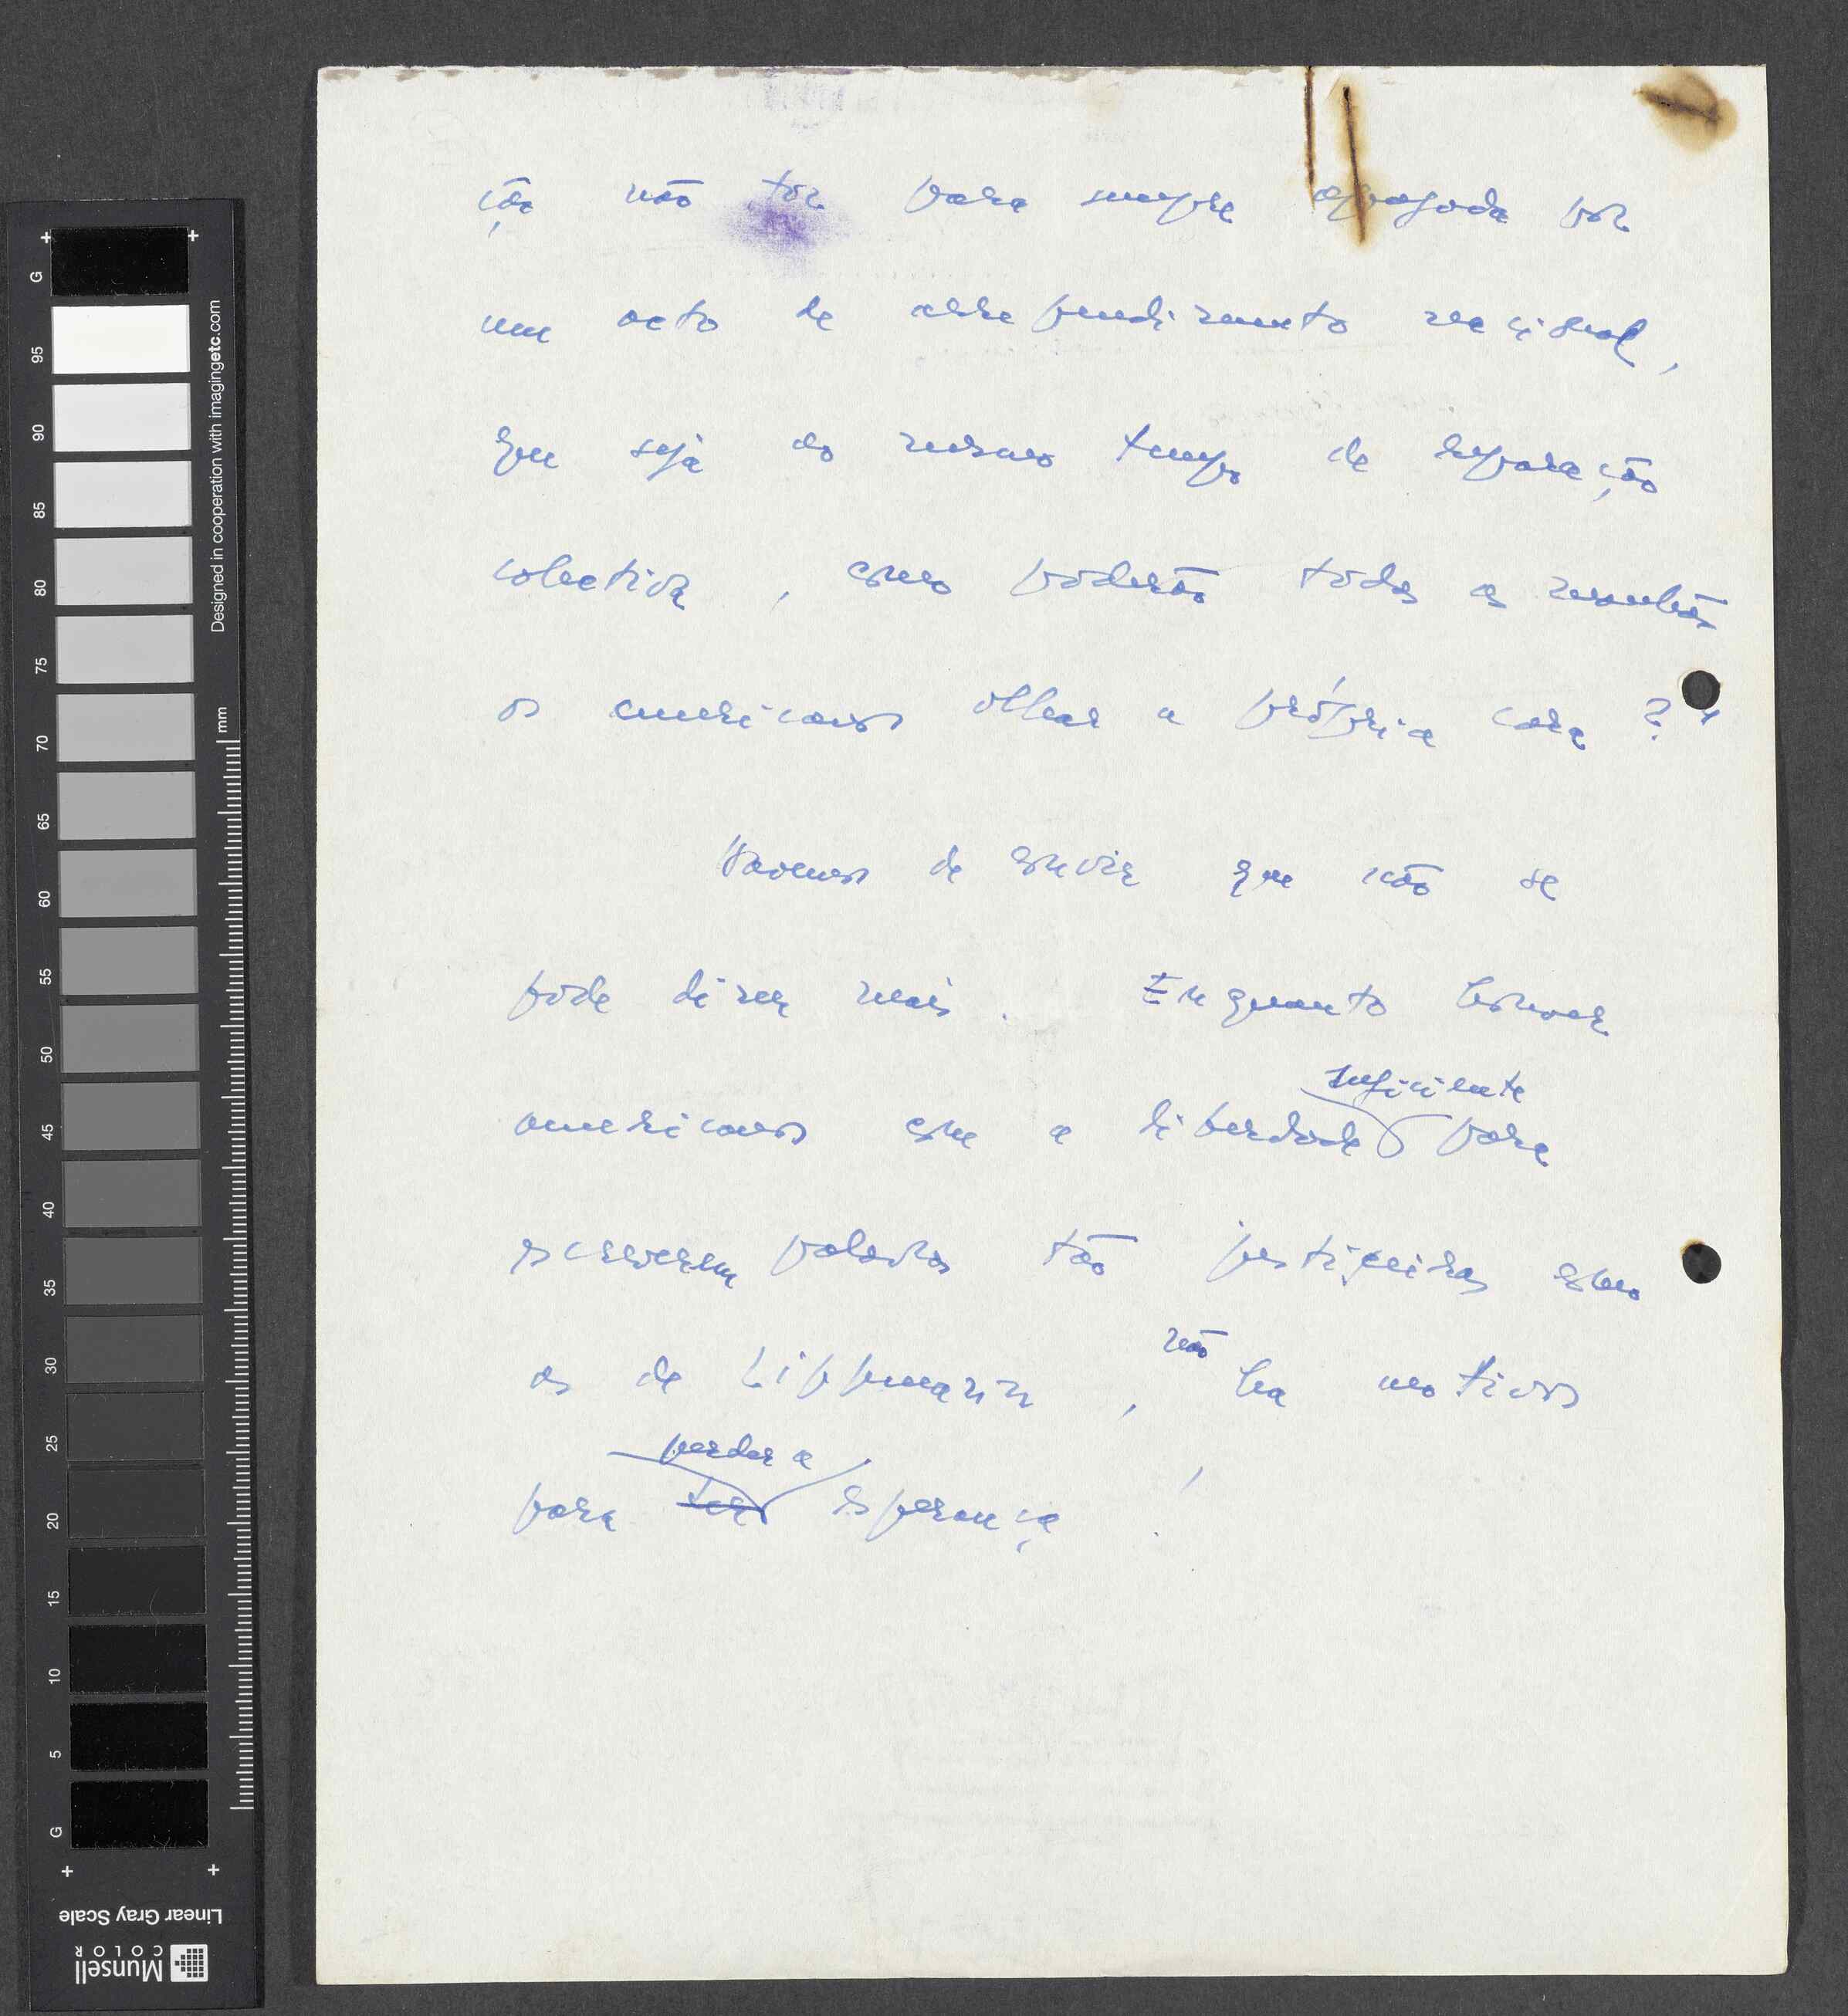 ção não for para sempre apagada por
um acto de arrependimento nacional,
que seja ao mesmo tempo de reparação
colectiva, como poderão todas as manhãs
os americanos olhar a própria cara?"
Havemos de convir que não se
pode dizer mais. Enquanto houver
suficiente
americanos com a liberdade para
escreverem palavras tão justiceiras como
não
as de Lippmann, ha motivos
perder a
para ter esperança!
G
95
90
85
80
75
70
65
60
55
50
45
40
35
30
25
20
15
10
5
G
mm
Designed in cooperation with imagingetc.com
Linear Gray Scale
Munsell
COLOR